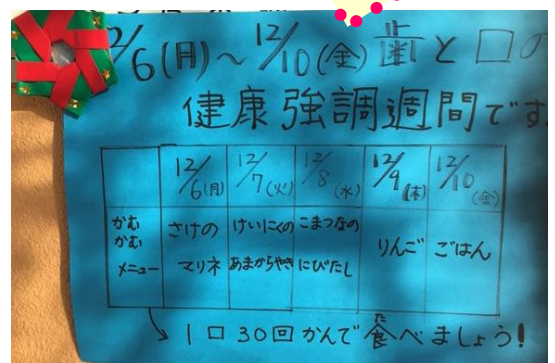 12/6(月)～12/10(金)歯と口の
健康強調週間です
12/6(月) 12/7(火) 12/8(水) 12/9(木) 12/10(金)
かむかむメニュー さけのマリネ けいにくのあまからやき こまつなのにびたし りんご ごはん
↳1口30回かんで食べましょう!
た